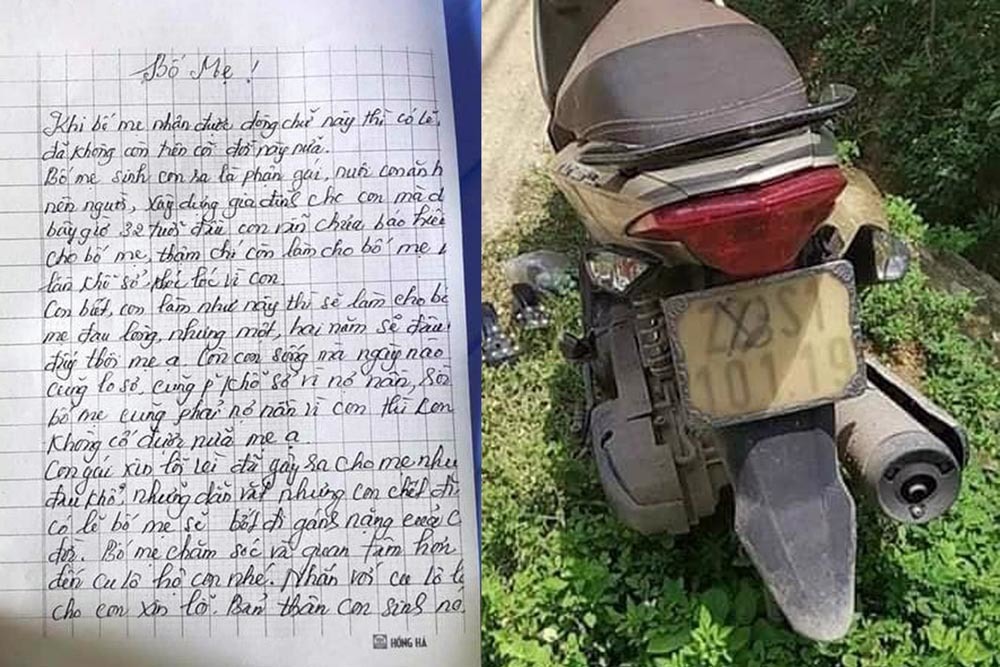 Bố Mẹ !
Khi bố mẹ nhận được dòng chữ này thì có lẽ
đã không còn trên cõi đời này nữa.
Bố mẹ sinh con ra là phận gái, nuôi con ăn h
nên người, xây dựng gia đình cho con mà đ
bây giờ 32 tuổi đầu con vẫn chưa báo hiếu
cho bố mẹ, thậm chí còn làm cho bố mẹ
lần khổ sở, khóc lóc vì con.
Con biết, con làm như này thì sẽ làm cho bố
mẹ đau lòng, nhưng một, hai năm sẽ đâu
đấy thôi mẹ ạ. Còn con sống mà ngày nào
cũng lo sợ, cũng khổ sở vì nợ nần,
bố mẹ cũng phải nợ nần vì con thì con
không cố được nữa mẹ ạ.
Con gái xin lỗi đã gây sa cho mẹ nhữ
đau khổ, những dằn vặt nhưng con chết đi
có lẽ bố mẹ sẽ bớt đi gánh nặng cuả c
đời. Bố mẹ chăm sóc và quan tâm hơn
đến cu lô hộ con nhé. Nhắn với cu lô
cho con xin lỗi. Bản thân con sinh nó
HỒNG HÀ
S1
101 19